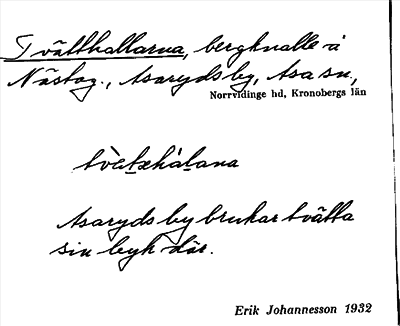 Tvätthallarna, bergknalle å
Nästog., Asaryds by, Asa sn,
Norrvidinge hd, Kronobergs län
Asaryds by brukar tvätta
sin byk där.
Erik Johannesson 1932